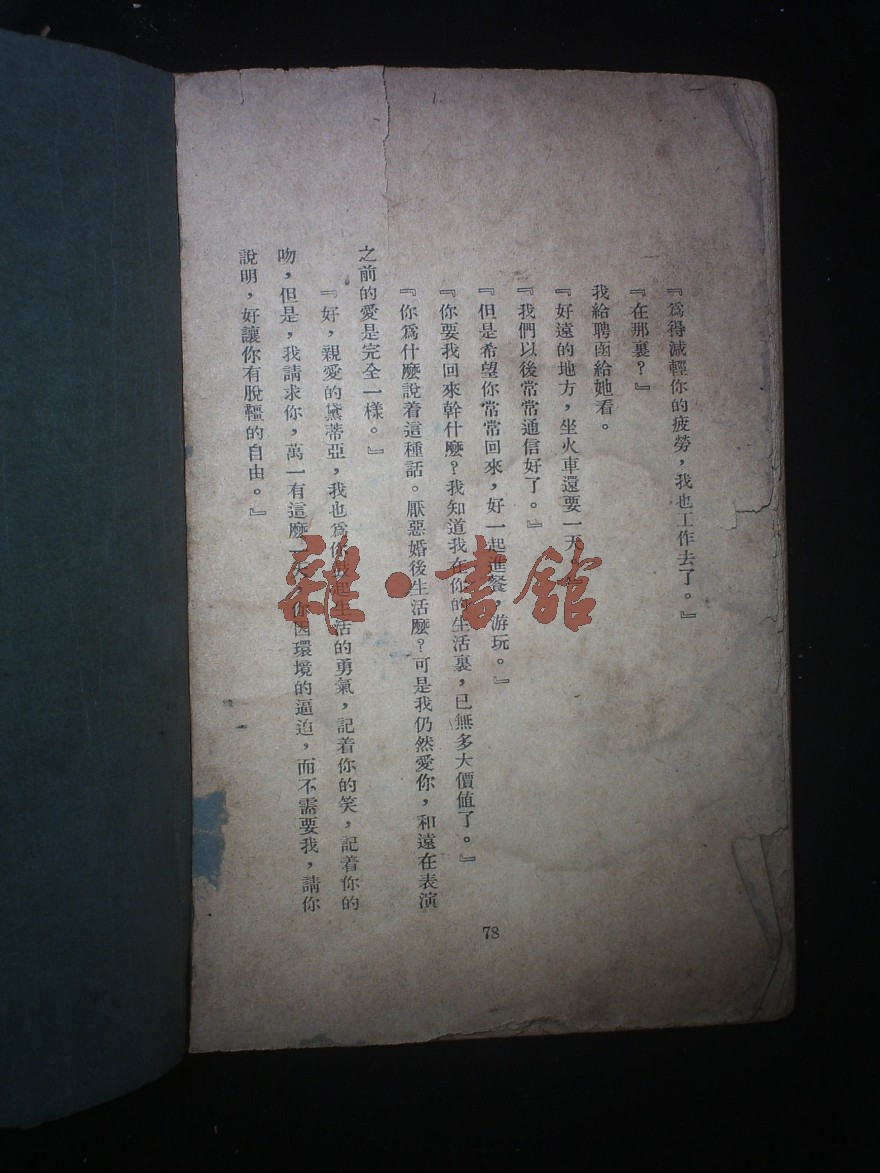 『爲得減輕你的疲勞，我也工作去了。』
『在那裏？』
我給聘函給她看。
『好遠的地方，坐火車還要一天。』
『我們以後常常通信好了。』
『但是希望你常常回來，好一起進餐，游玩。』
『你要我回來幹什麽？我知道我在你的生活裏，已無多大價值了。』
『你爲什麽說着這種話。厭惡婚後生活麽？可是我仍然愛你，和遠在表演
之前的愛是完全一樣。』
『好，親愛的黛蒂亞，我也爲你鼓起生活的勇氣，記着你的笑，記着你的
吻，但是，我請求你，萬一有這麽一天，你因環境的逼迫，而不需要我，請你
說明，好讓你有脫韁的自由。』
78
雜·書館